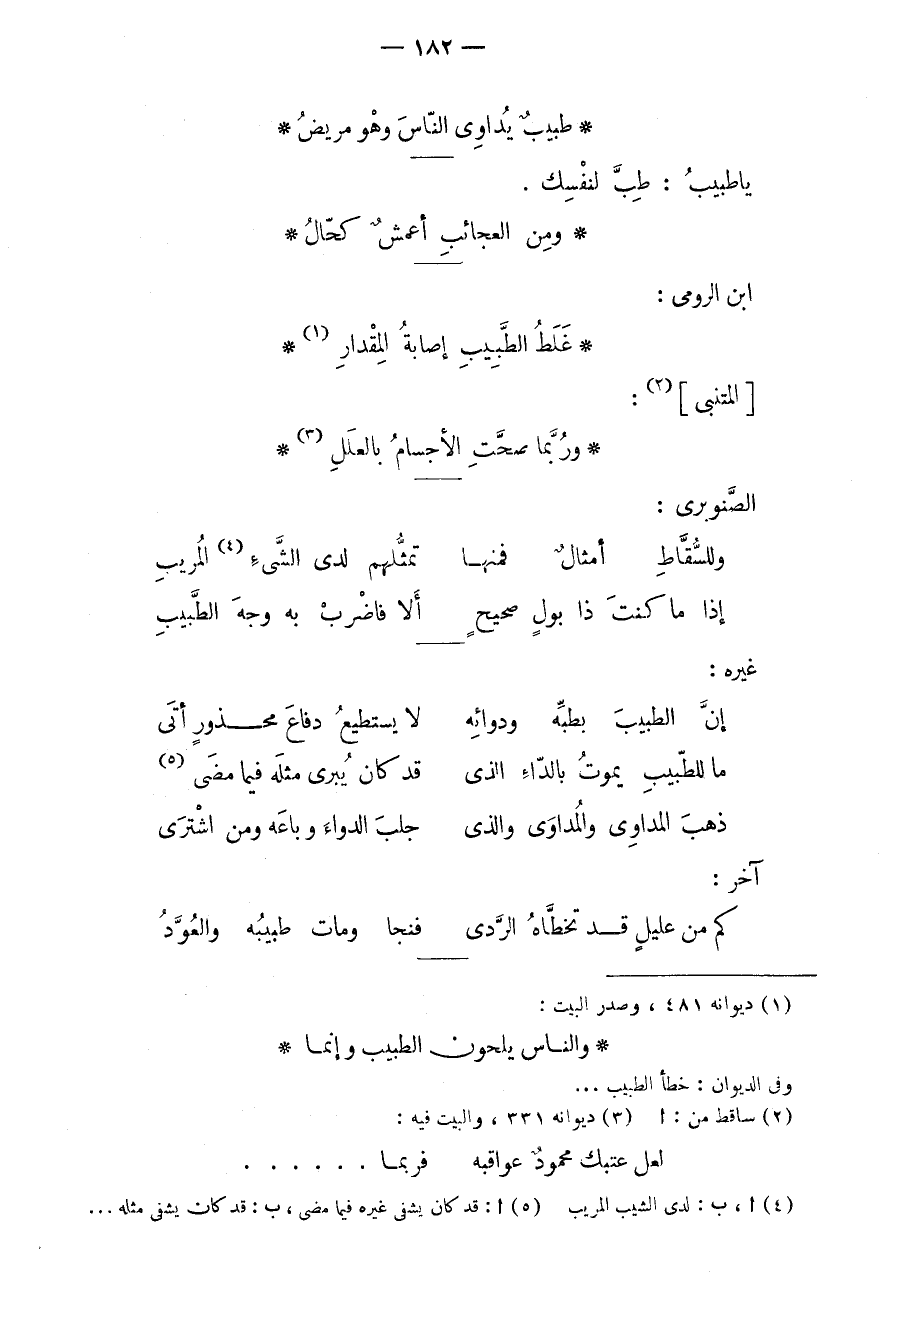 — ١٨٢ —
* طبيبٌ يُداوِى النّاسَ وهْو مريضُ *
ياطبيبُ : طِبَّ لنفْسِك .
* ومِن العجائبِ أعمشٌ كحّالُ *
ابن الرومى :
* غَلَطُ الطَّبِيبِ إصابةُ المِقْدارِ (١) *
[ المتنبى ] (٢) :
* ورُبَّما صحَّتِ الأجسامُ بالعلَلِ (٣) *
الصَّنوبرى :
وللسُّقَّاطِ أمثالٌ فمنها تمثُّلهم لدى الشَّىءِ (٤) المُريبِ
إذا ما كنتَ ذا بولٍ صحيحٍ ألا فاضْربْ به وجهَ الطَّبيبِ
غيره :
إنَّ الطبيبَ بطبِّه ودوائِه لا يستطيعُ دفاعَ محذورٍ أتَى
ما للطّبيبِ يموتُ بالدّاءِ الذى قد كان يُبرى مثلَه فيما مضَى (٥)
ذهبَ المداوِى والمُداوَى والذى جلبَ الدواءَ وباعَه ومن اشْترَى
آخر :
كم من عليلٍ قد تخطَّاهُ الرَّدى فنجا ومات طبيبُه والعُوَّدُ
(١) ديوانه ٤٨١ ، وصدر البيت :
* والناس يلحون الطبيب وإنما *
وفى الديوان : خطأ الطبيب ...
(٢) ساقط من : ا (٣) ديوانه ٣٣١ ، والبيت فيه :
لعل عتبك محمودٌ عواقبه فربما . . . . . .
(٤) ا ، ب : لدى الشيب المريب (٥) ا : قد كان يشفى غيره فيما مضى ، ب : قد كان يشفى مثله ...